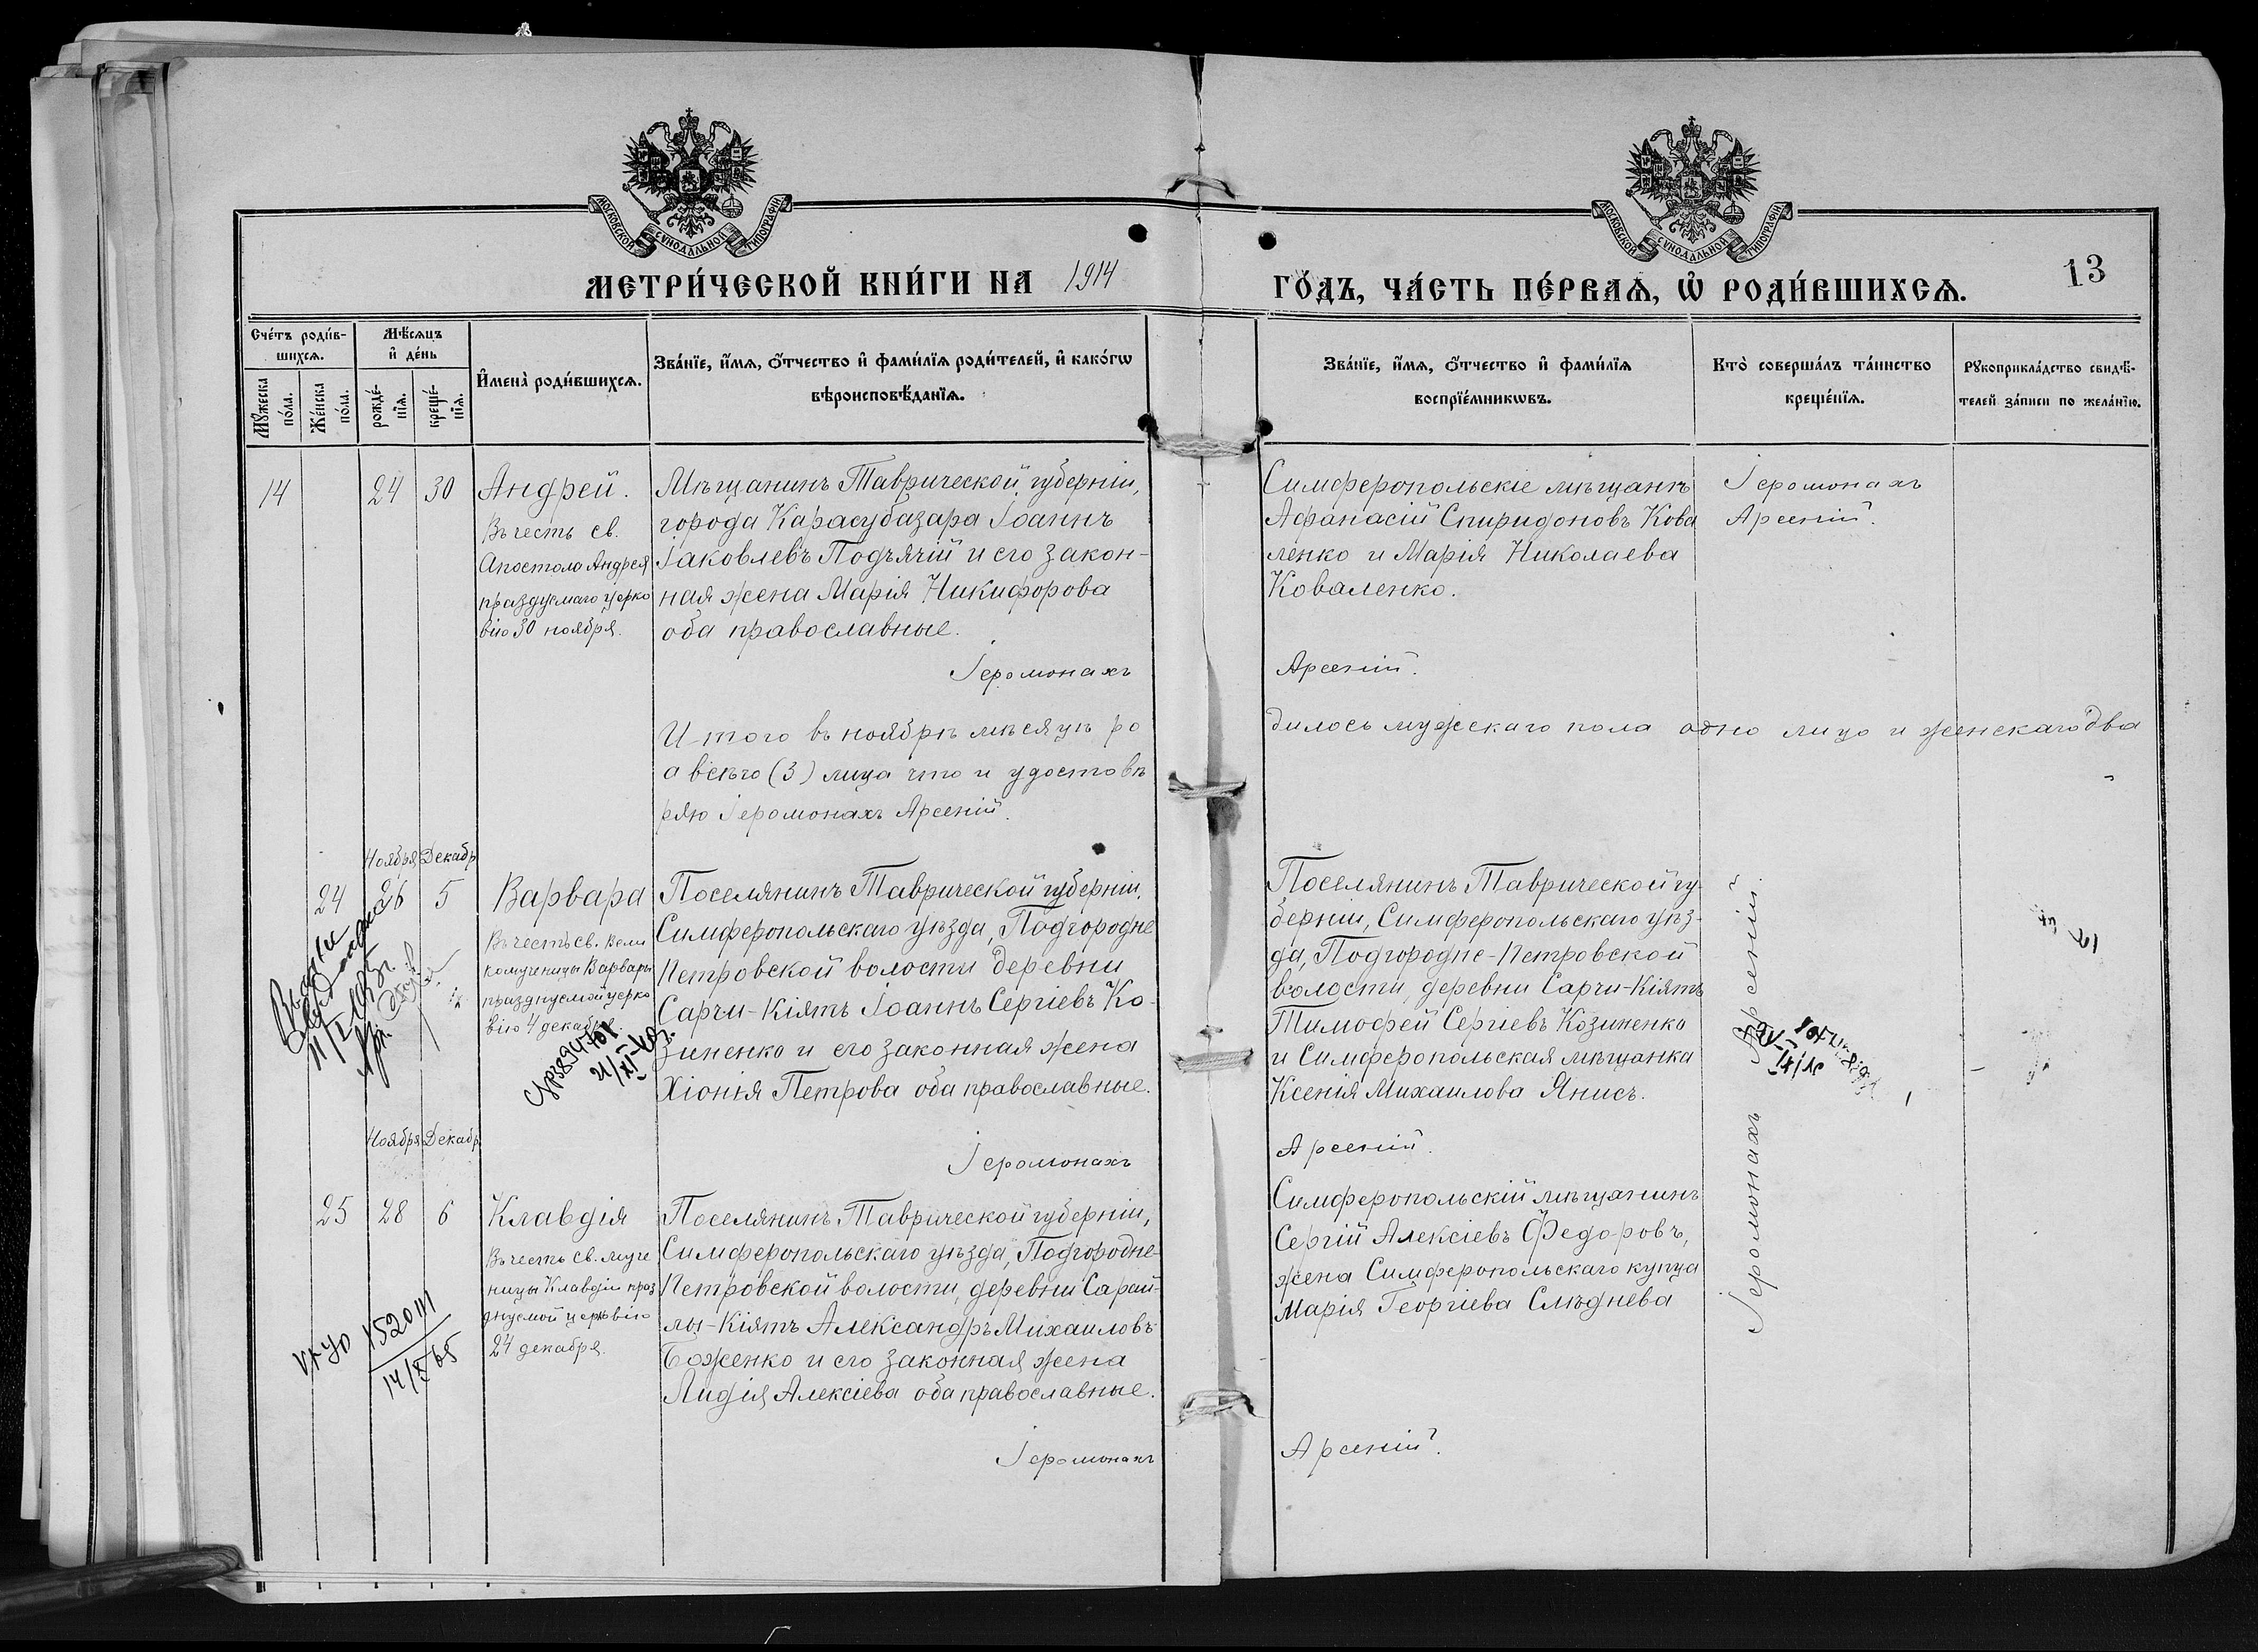 МОСКОВСКОЙ СѴНОДАЛЬНОЙ ТИПОГРАФІИ
МОСКОВСКОЙ СѴНОДАЛЬНОЙ ТИПОГРАФІИ
МЕТРИ́ЧЕСКОЙ КНИ́ГИ НА 1914
ГО́ДЪ, ЧА́СТЬ ПЕ́РВАѦ, Ѡ҆ РОДИ́ВШИХСѦ.
13
Сче́тъ роди́в-
шихсѧ.
Мꙋ́жеска по́ла.
Же́нска по́ла.
Мѣ́сѧцъ
и҆ де́нь
рожде́-
нїѧ.
креще́-
нїѧ.
И҆мена̀ роди́вшихсѧ.
Зва́нїе, и҆́мѧ, ѻ҆́тчество и҆ фами́лїѧ роди́телей, и҆ како́гѡ
вѣроисповѣ́данїѧ.
Зва́нїе, и҆́мѧ, ѻ҆́тчество и҆ фами́лїѧ
воспрїе́мникѡвъ.
Кто̀ соверша́лъ та́инство
креще́нїѧ.
Рꙋкоприкла́дство свидѣ́-
телей за́писи по жела́нїю.
14
24
30
Андрей.
Въ честь св.
Апостола Андрея
праздуемаго церко
вію 30 ноября.
Мѣщанинъ Таврической губерніи,
города Карасубазара Іоаннъ
Іаковлевъ Подъячій и его закон-
ная жена Марія Никифорова
оба православные.
Іеромонахъ
Симферопольскіе мѣщанѣ
Афанасій Спиридоновъ Кова
ленко и Марія Николаева
Коваленко.
Арсеній.
Іеромонахъ
Арсеній.
Итого въ ноябрѣ мѣсяцѣ ро
дилось мужскаго пола одно лицо и женскаго два
а всѣго (3) лица что и удостовѣ
ряю Іеромонахъ Арсеній.
Ноября
Декабр
24
26
5
Варвара
Въ честь св. Вели
комученицы Варвары
празднуемой церко
вію 4 декабря.
Поселянинъ Таврической губерніи,
Симферопольскаго уѣзда, Подгородне
Петровской волости деревни
Сарчи-Кіятъ Іоаннъ Сергіевъ Ко-
зиненко и его законная жена
Хіонія Петрова оба православные.
Іеромонахъ
Поселянинъ Таврической гу-
берніи, Симферопольскаго уѣз-
да, Подгородне-Петровской
волости, деревни Сарчи-Кіятъ
Тимофей Сергіевъ Козиненко
и Симферопольская мѣщанка
Ксенія Михаилова Янисъ.
Арсеній.
Іеромонахъ Арсеній.
Ноября
Декабр
25
28
6
Клавдія
Въ честь св. муче
ницы Клавдіи праз
днуемой церквію
24 декабря.
Поселянинъ Таврической губерніи,
Симферопольскаго уѣзда, Подгородне-
Петровской волости, деревни Сарай-
лы-Кіятъ Александръ Михаиловъ
Боженко и его законная жена
Лидія Алексіева оба православные.
Іеромонахъ
Симферопольскій мѣщанинъ
Сергій Алексіевъ Федоровъ,
жена Симферопольскаго купца
Марія Георгіева Слѣднева
Арсеній.
14/X 65